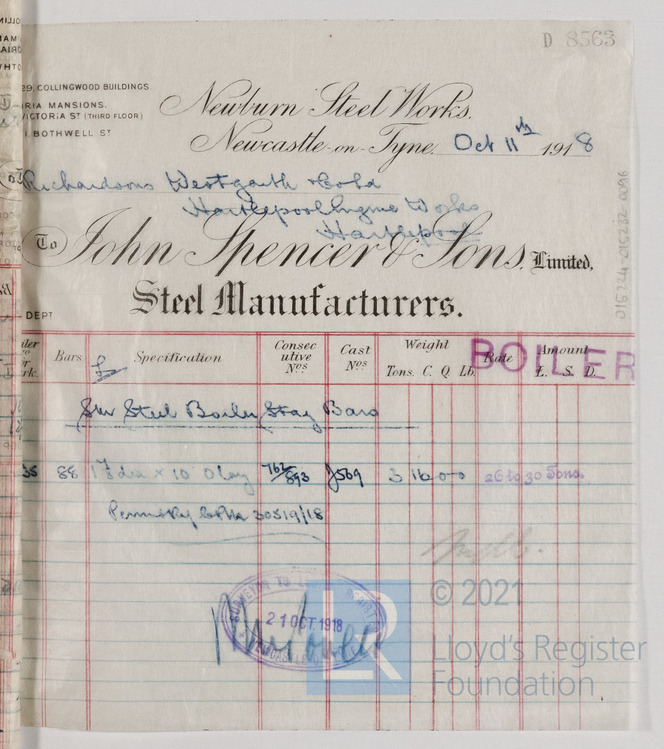 D 8563
29, COLLINGWOOD BUILDINGS
RIA MANSIONS.
VICTORIA ST (THIRD FLOOR)
BOTHWELL ST
Newburn Steel Works.
Newcastle-on-Tyne. Oct 11th 1918
Richardsons Westgarth & Co Ld
Hartlepool Engine Works
Hartlepool
To John Spencer & Sons, Limited,
Steel Manufacturers.
DEPT
Bars Specification Consecutive Nos Cast Nos Weight Rate Amount
Tons. C. Q. Lb. £. S. D.
BOILER
Steel Boiler Stay Bars
88 x 10" 0 long 762/893 569 3 16 0 0 26 to 30 Tons.
30519/18
21 OCT 1918
© 2021
Lloyd's Register
Foundation
LR
015224-015232-0296